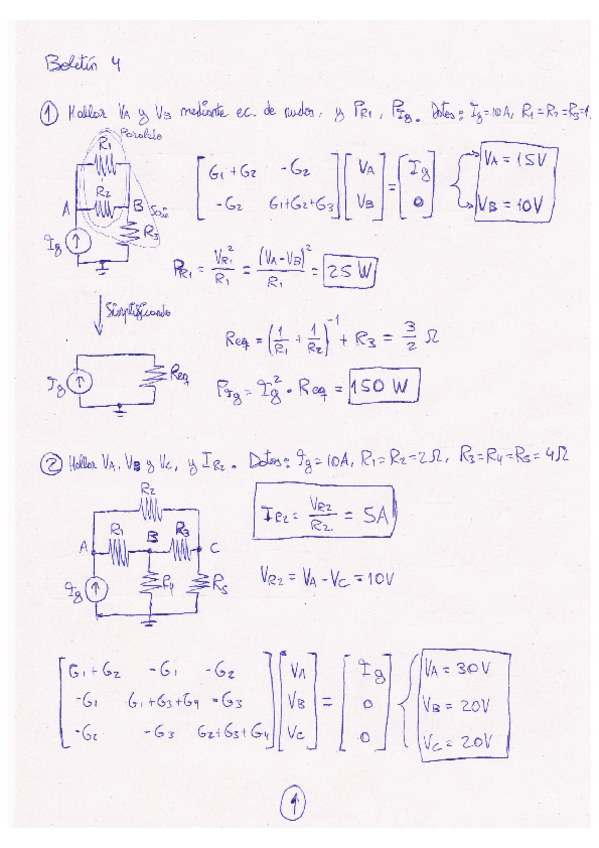 Boletín 4
① Hallar VA y VB mediante ec. de nudos. y PR1, PIg. Datos: Ig=10A, R1=R2=R3=1
Paralelo
R1
R2
A
B
Serie
R3
Ig
[G1+G2 -G2] [VA] = [Ig]
[-G2 G1+G2+G3] [VB] [0]
VA = 15V
VB = 10V
PR1 = VR1²/R1 = (VA-VB)²/R1 = 25 W
Simplificando
Ig
Req
Req = (1/R1 + 1/R2)⁻¹ + R3 = 3/2 Ω
PIg = Ig² · Req = 150 W
② Hallar VA, VB y VC, y IR2. Datos: Ig=10A, R1=R2=2Ω, R3=R4=R5=4Ω
R2
R1
B
R3
A
C
Ig
R4
R5
IR2 = VR2/R2 = 5A
VR2 = VA - VC = 10V
[G1+G2 -G1 -G2] [VA] = [Ig]
[-G1 G1+G3+G4 -G3] [VB] [0]
[-G2 -G3 G2+G3+G4] [VC] [0]
VA = 30V
VB = 20V
VC = 20V
1